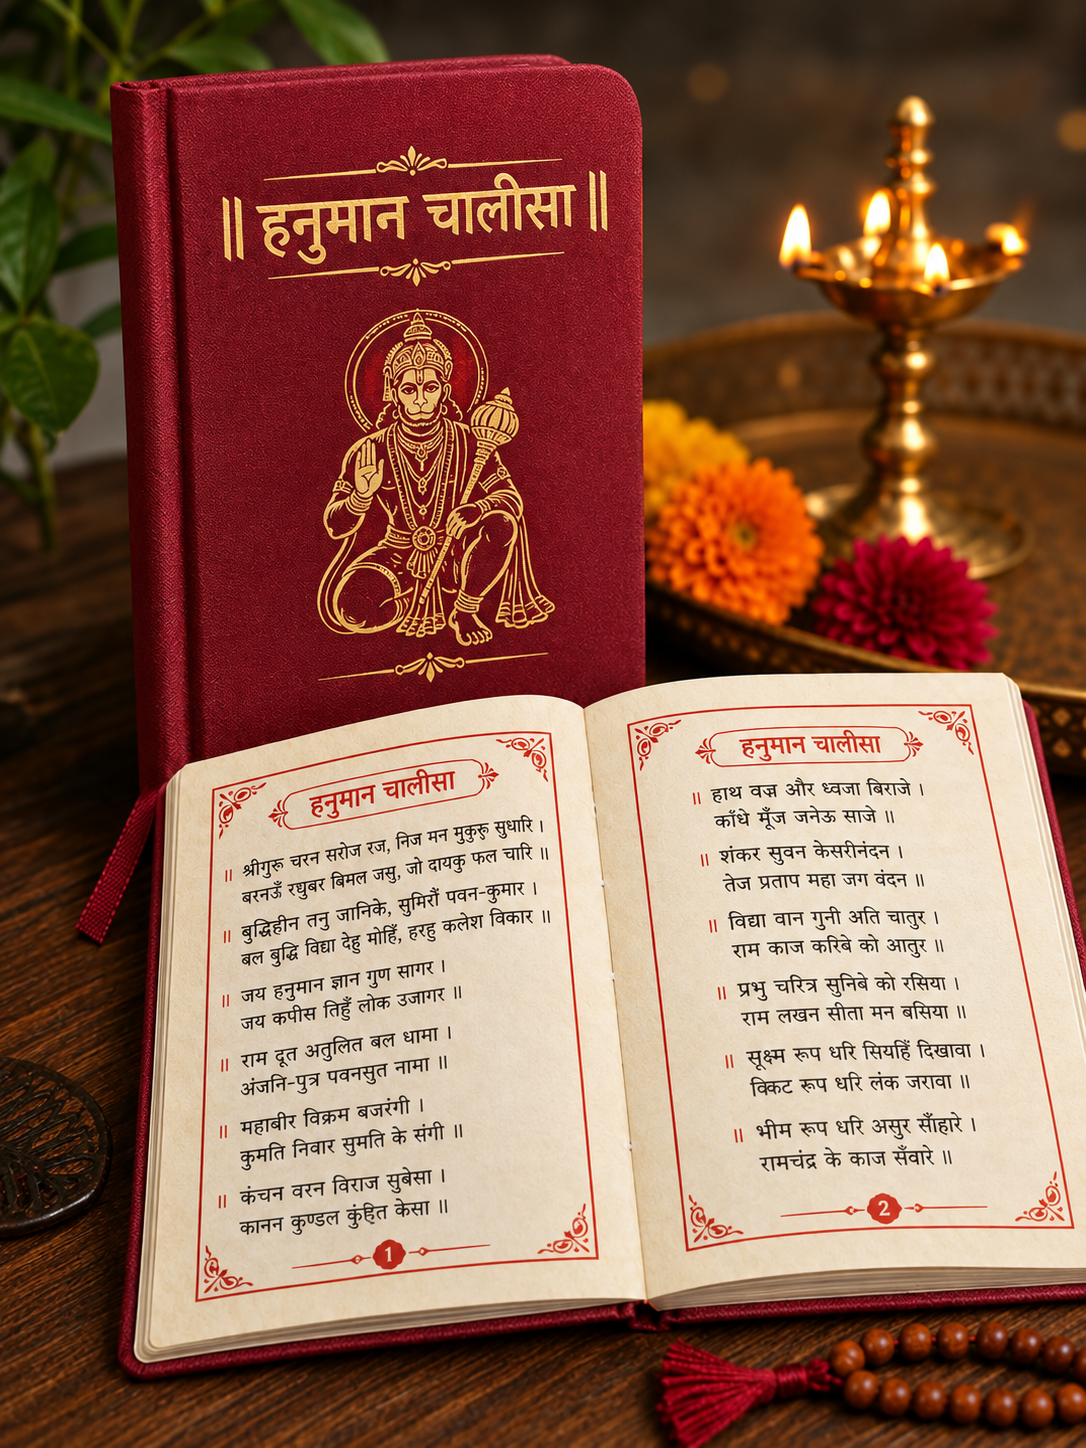 ॥ हनुमान चालीसा ॥
हनुमान चालीसा
॥ श्रीगुरू चरन सरोज रज, निज मन मुकुरू सुधारि ।
बरनऊँ रघुबर बिमल जसु, जो दायकु फल चारि ॥
॥ बुद्धिहीन तनु जानिके, सुमिरौं पवन-कुमार ।
बल बुद्धि विद्या देहु मोहिं, हरहु कलेश विकार ॥
॥ जय हनुमान ज्ञान गुण सागर ।
जय कपीस तिहुँ लोक उजागर ॥
॥ राम दूत अतुलित बल धामा ।
अंजनि-पुत्र पवनसुत नामा ॥
॥ महाबीर विक्रम बजरंगी ।
कुमति निवार सुमति के संगी ॥
॥ कंचन वरन विराज सुबेसा ।
कानन कुण्डल कुंहित केसा ॥
1
हनुमान चालीसा
॥ हाथ वज्र और ध्वजा बिराजे ।
काँधे मूँज जनेऊ साजे ॥
॥ शंकर सुवन केसरीनंदन ।
तेज प्रताप महा जग वंदन ॥
॥ विद्या वान गुनी अति चातुर ।
राम काज करिबे को आतुर ॥
॥ प्रभु चरित्र सुनिबे को रसिया ।
राम लखन सीता मन बसिया ॥
॥ सूक्ष्म रूप धरि सियहिं दिखावा ।
विकट रूप धरि लंक जरावा ॥
॥ भीम रूप धरि असुर साँहारे ।
रामचंद्र के काज सँवारे ॥
2